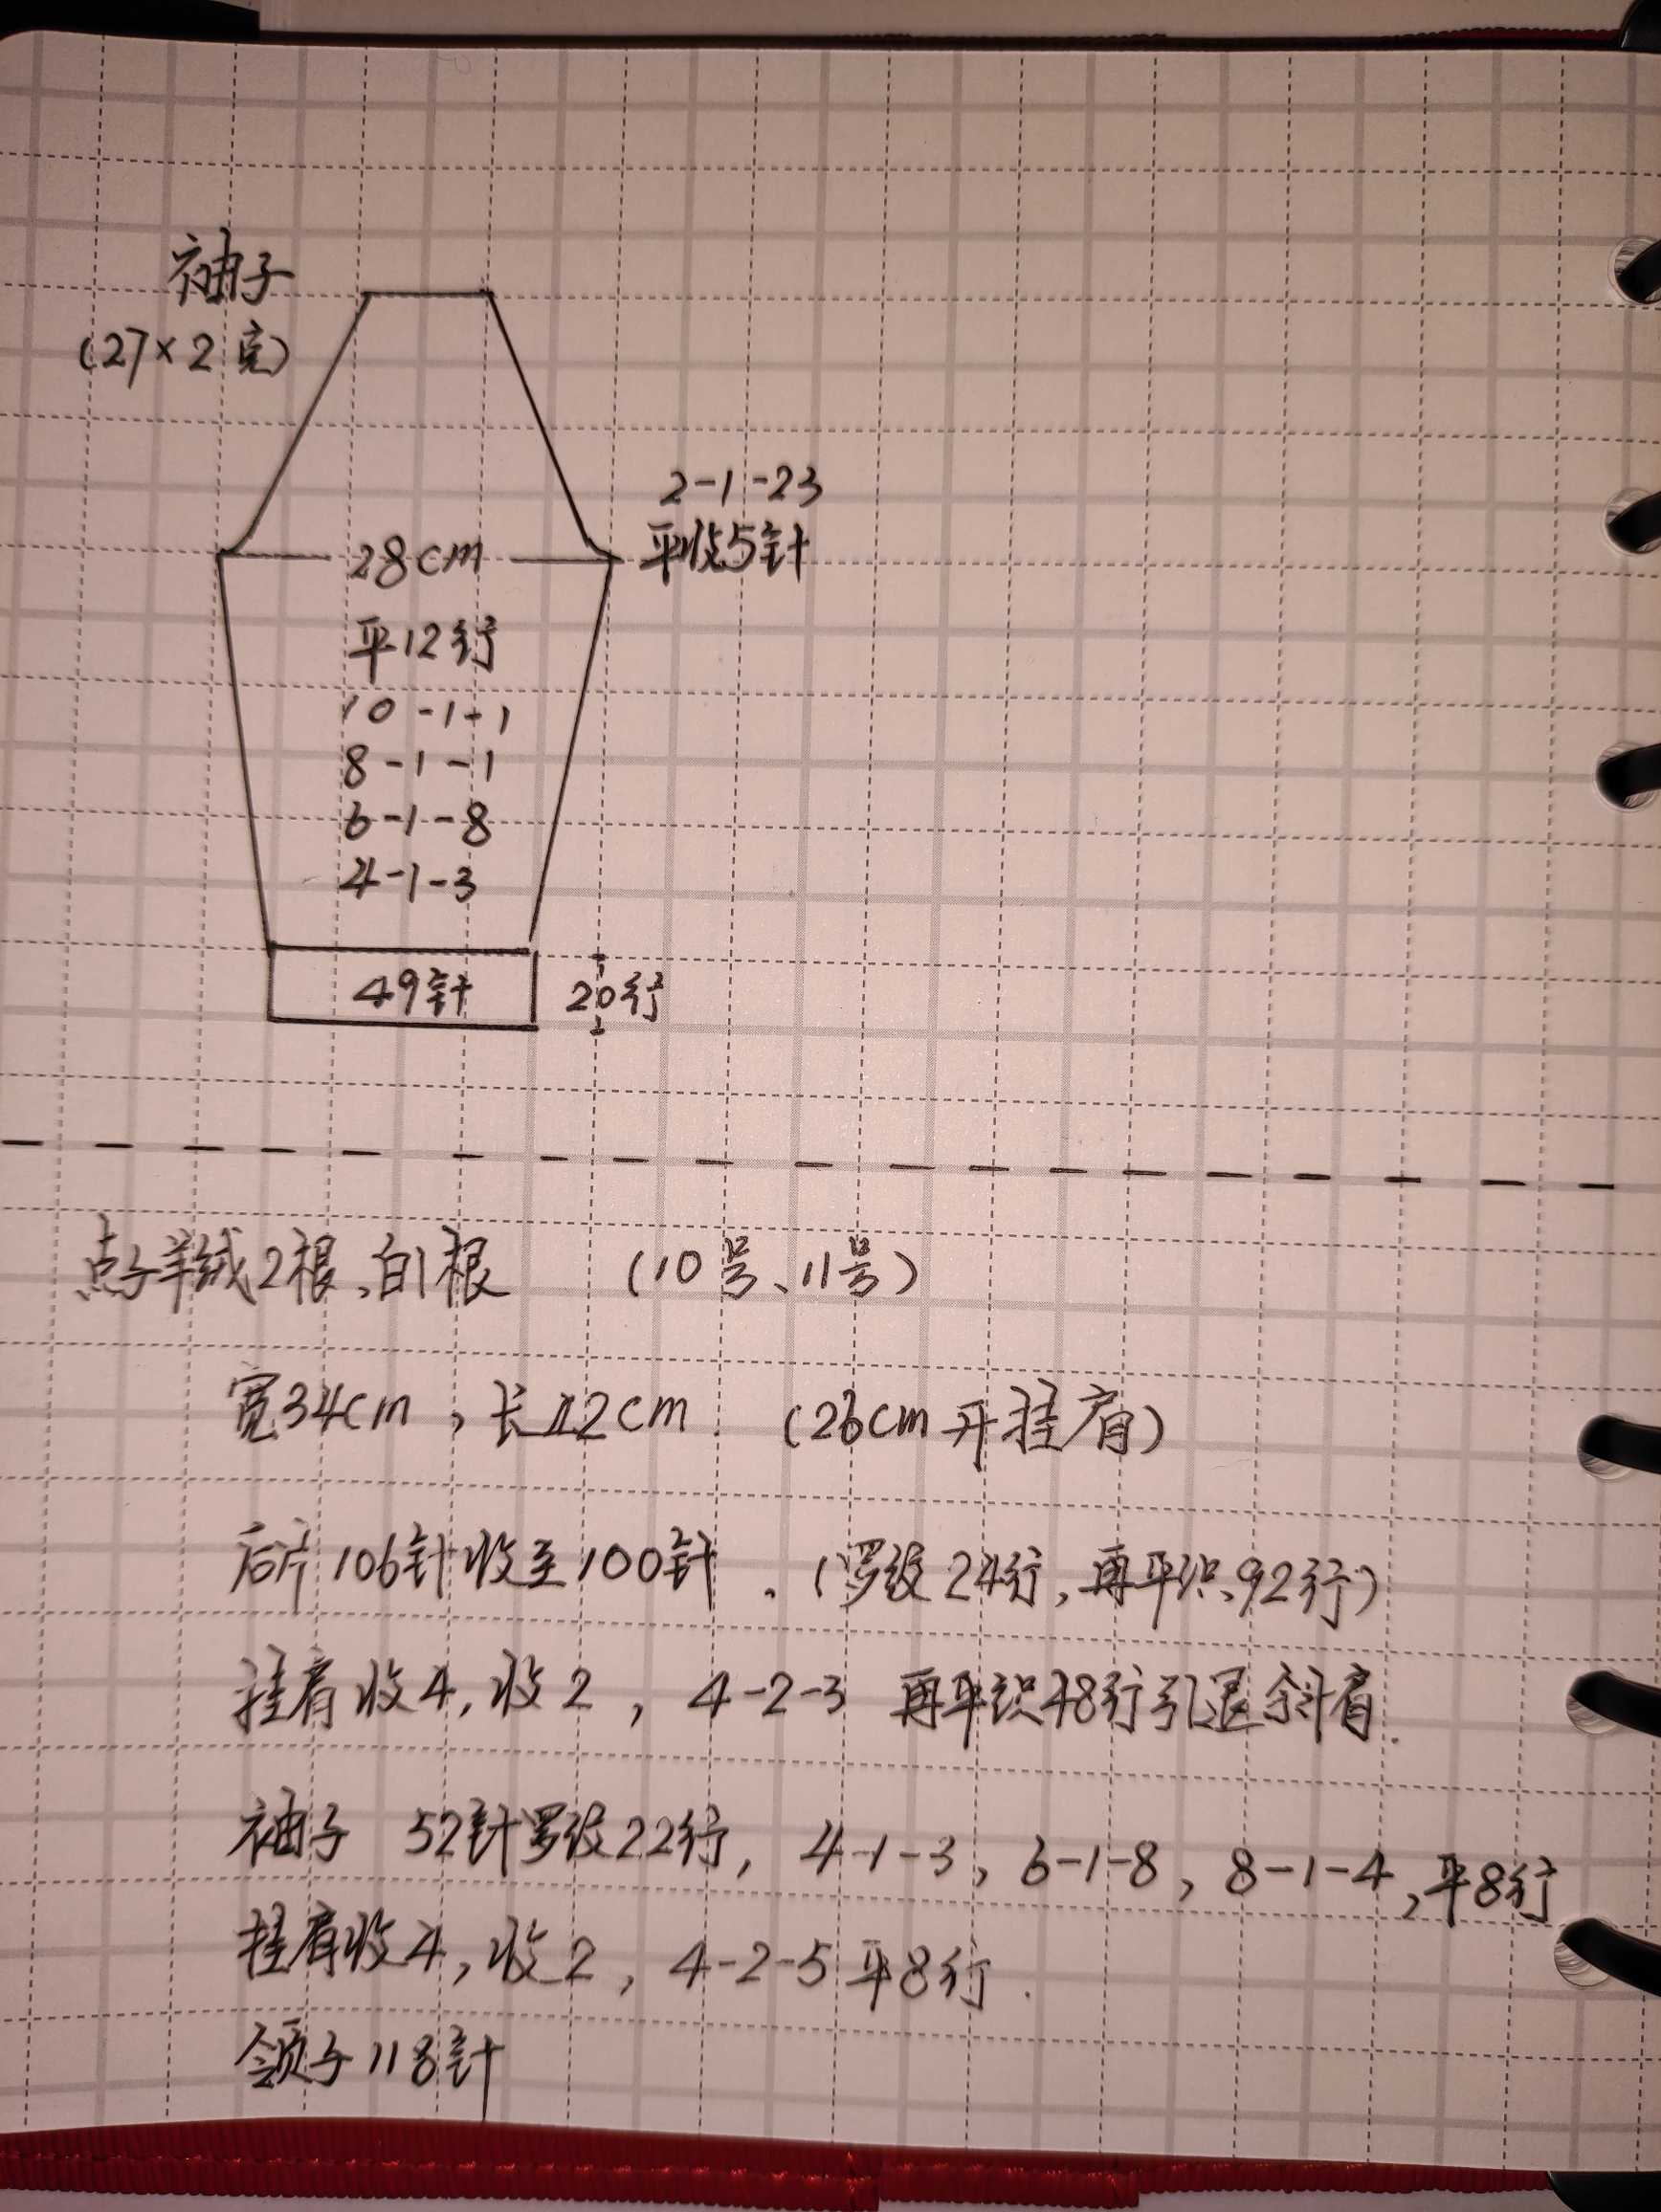 袖子
(27×2克)
2-1-23
28cm 平收5针
平12行
10-1-1
8-1-1
6-1-8
4-1-3
49针 20行
点子羊绒2根、白1根 (10号、11号)
宽34cm,长42cm.(26cm开挂肩)
后片106针收至100针.(罗纹24行,再平织92行)
挂肩收4,收2,4-2-3 再平织48行引退斜肩.
袖子 52针罗纹22行,4-1-3,6-1-8,8-1-4,平8行
挂肩收4,收2,4-2-5平8行.
领子118针